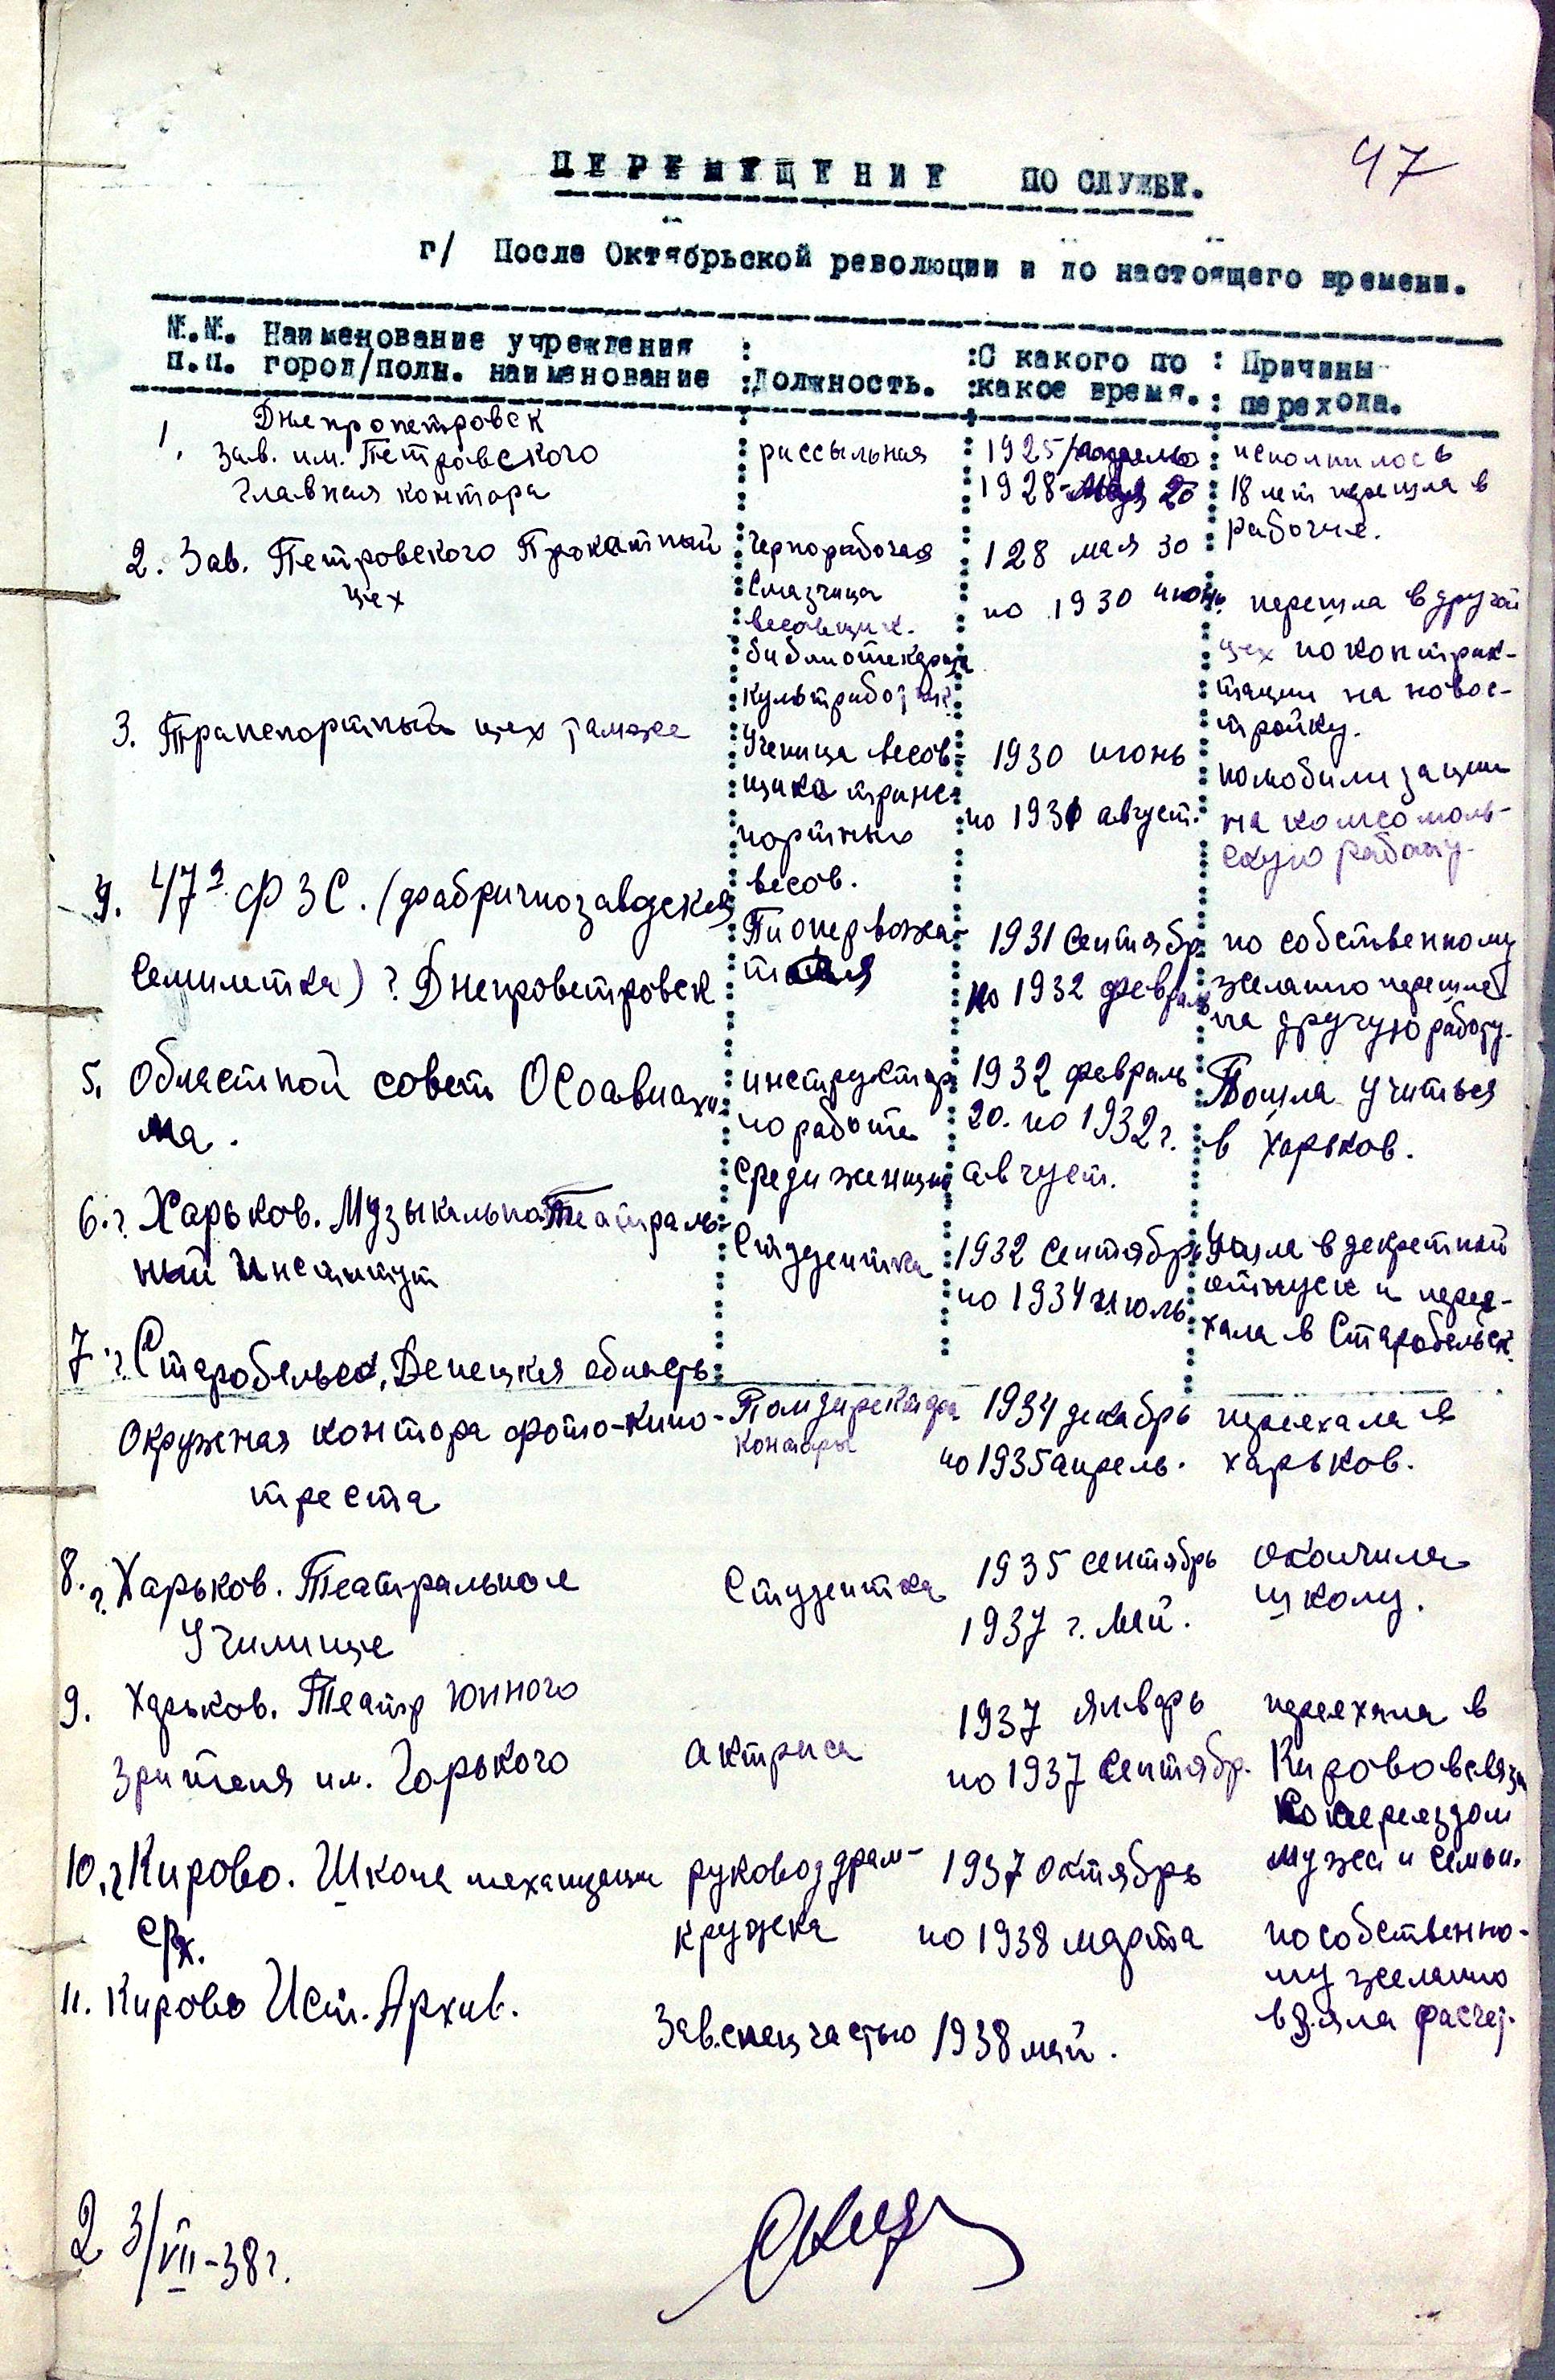 47
ПЕРЕМЕЩЕНИЕ ПО СЛУЖБЕ.
г/ После Октябрьской революции и до настоящего времени.
№.№. Наименование учреждения
п.п. город/полн. наименование
Должность.
С какого по
какое время.
Причины
перехода.
1. Днепропетровск
Зав. им. Петровского
Главная контора
рассыльная
1925/апрель
1928-мая 20
исполнилось
18 лет перешла в
рабочие.
2. Зав. Петровского Прокатный
цех
Чернорабочая
Смазчица
весовщик.
библиотекарша
культработник
128 мая 30
по 1930 июнь
перешла в другой
цех по контрак-
тации на новос-
тройку.
3. Транспортный цех также
Ученица весов-
щика транс-
портных
весов.
1930 июнь
по 1931 август.
помобилизации
на комсомоль-
скую работу.
4. 47я ФЗС. (фабричнозаводская
Семилетка) г. Днепропетровск
Пионервожа-
тая
1931 Сентябрь
по 1932 февраль
по собственному
желанию перешла
на другую работу.
5. Областной совет Осоавиахи
ма.
инструктор
по работе
среди женщин
1932 февраль
20. по 1932 г.
август.
Пошла учиться
в Харьков.
6. г. Харьков. Музыкально Театраль-
ный Институт
Студентка
1932 Сентябрь
по 1934 июль
Ушла в декретный
отпуск и перее-
хала в Старобельск.
7. г. Старобельск, Донецкая область
Окружная контора фото-кино-
треста
Помдиректора
конторы
1934 декабрь
по 1935 апрель.
переехала в
Харьков.
8. г. Харьков. Театральное
Училище
Студентка
1935 сентябрь
1937 г. май.
окончила
школу.
9. Харьков. Театр Юнного
Зрителя им. Горького
актриса
1937 январь
по 1937 Сентябр.
переехала в
Кирово в связи
со переездом
мужа и семьи.
10. г. Кирово. Школа механизации
с/х.
руковод драм-
кружка
1937 октябрь
по 1938 марта
по собственно-
му желанию
взяла расчет.
11. Кирово Ист. Архив.
Зав. спец частью
1938 май.
23/VII-38 г.